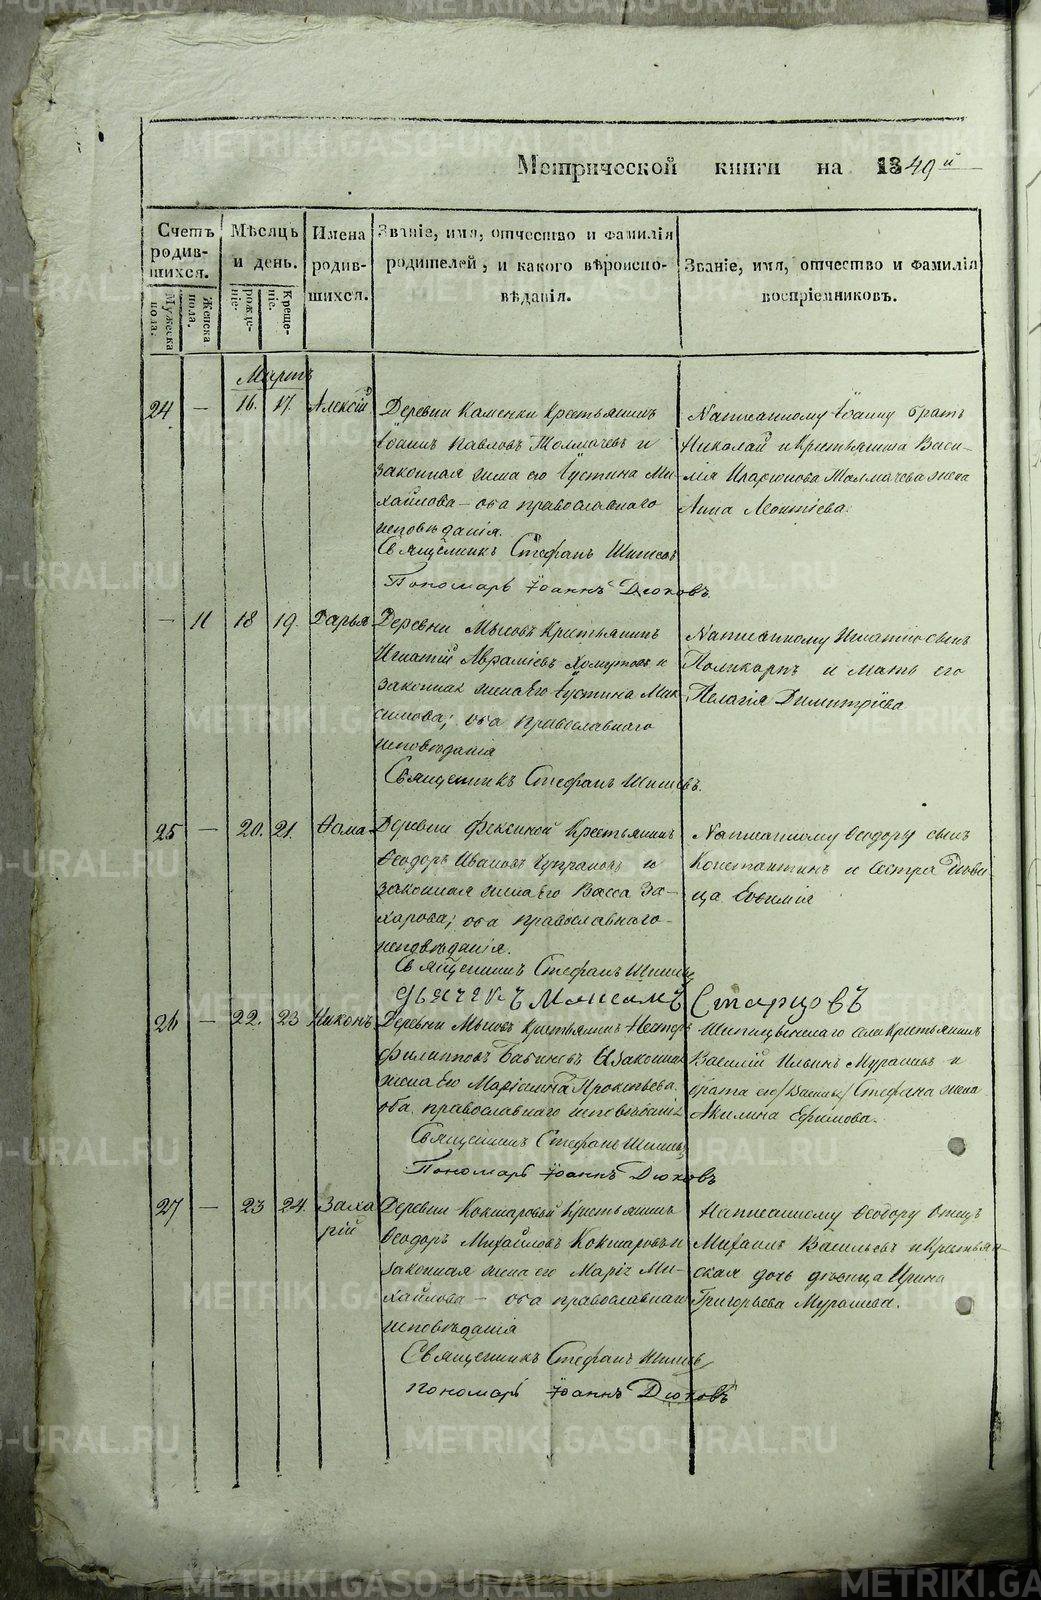 Метрической книги на 1849й
Счетъ родив-шихся.
Мужеска пола.
Женска пола.
Мѣсяцъ и день.
рожде-ніе.
Креще-ніе.
Имена родив-шихся.
Званіе, имя, отчество и фамилія
родителей, и какого вѣроиспо-
вѣданія.
Званіе, имя, отчество и фамилія
воспріемниковъ.
Мартъ
24 — 16. 17. Алексій
Деревни Каменки Крестьянинъ
Іоаннъ Павловъ Толмачевъ и
законная жена его Іустина Ми-
хайлова — оба православнаго
исповѣданія.
Священникъ Стефанъ
Пономарь Іоаннъ Дюковъ.
Написанному Іоанну братъ
Николай и Крестьянина Васи-
лія Иларіонова Толмачева жена
Анна Леонтіева.
— 11 18 19. Дарья
Деревни Мысовъ Крестьянинъ
Игнатій Авраміевъ Хомутовъ и
законная жена его Іустина Мак-
симова; оба православнаго
исповѣданія
Священникъ Стефанъ
Написанному Игнатію сынъ
Поликарпъ и мать его
Пелагія Димитріева
25 — 20. 21. Ѳома
Деревни Фекиной Крестьянинъ
Ѳеодоръ Ивановъ и
законная жена его Васса За-
харова; оба православнаго
исповѣданія.
Священникъ Стефанъ
Дьячекъ Максимъ Старцовъ
Написанному Ѳеодору сынъ
Константинъ и сестра дѣви-
ца Евѳимія
26 — 22. 23 Никонъ
Деревни Мысовъ Крестьянинъ Несторъ
Филипповъ Бабиновъ и законная
жена его Маріанна Прокопьева
оба православнаго исповѣданія
Священникъ Стефанъ
Пономарь Іоаннъ Дюковъ
села Крестьянинъ
Василій Ильинъ Мурашевъ и
брата его Стефана жена
Акилина Ефимова.
27 — 23 24. Заха
рій
Деревни Кокшаровой Крестьянинъ
Ѳеодоръ Михайловъ Кокшаровъ и
законная жена его Марія Ми-
хайлова — оба православнаго
исповѣданія
Священникъ Стефанъ
Пономарь Іоаннъ Дюковъ
Написанному Ѳеодору Отецъ
Михаилъ Васильевъ и Крестьян-
ская дочь дѣвица Ирина
Григорьева Мурашева.
METRIKI.GASO-URAL.RU